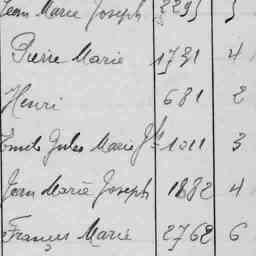 Jean Marie Joseph 2295 5
Pierre Marie 1731 4
Henri 681 2
Jules Marie Jh 1011 3
Jean Marie Joseph 1882 4
François Marie 2762 6